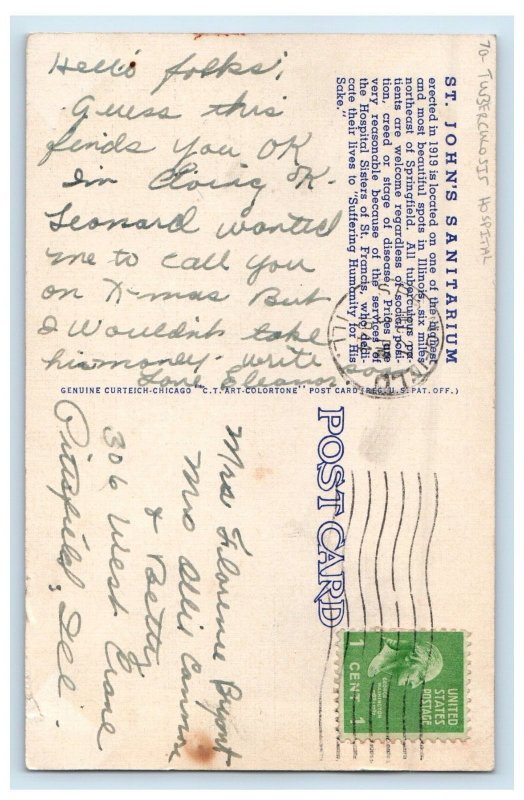 Hello folks,
Guess this
finds you OK
im doing OK-
Leonard wanted
me to call you
on X-mas But
I wouldn't take
his money. write soon
Love Eleanor.
70- TUBERCULOSIS HOSPITAL
ST. JOHN'S SANITARIUM
erected in 1919 is located on one of the highest
and most beautiful spots in Illinois, six miles
northeast of Springfield. All tuberculous pa-
tients are welcome regardless of social posi-
tion, creed or stage of disease. Prices are
very reasonable because of the services of
the Hospital Sisters of St. Francis, who dedi-
cate their lives to "Suffering Humanity for His
Sake."
GENUINE CURTEICH-CHICAGO "C.T. ART-COLORTONE" POST CARD (REG. U.S. PAT. OFF.)
POST CARD
Mrs Florence Brynt
Mrs Allis Cannon
& Betty
306 West Crane
Pittsfield, Ill.
UNITED
STATES
POSTAGE
GEORGE
WASHINGTON
1 CENT 1
ILL